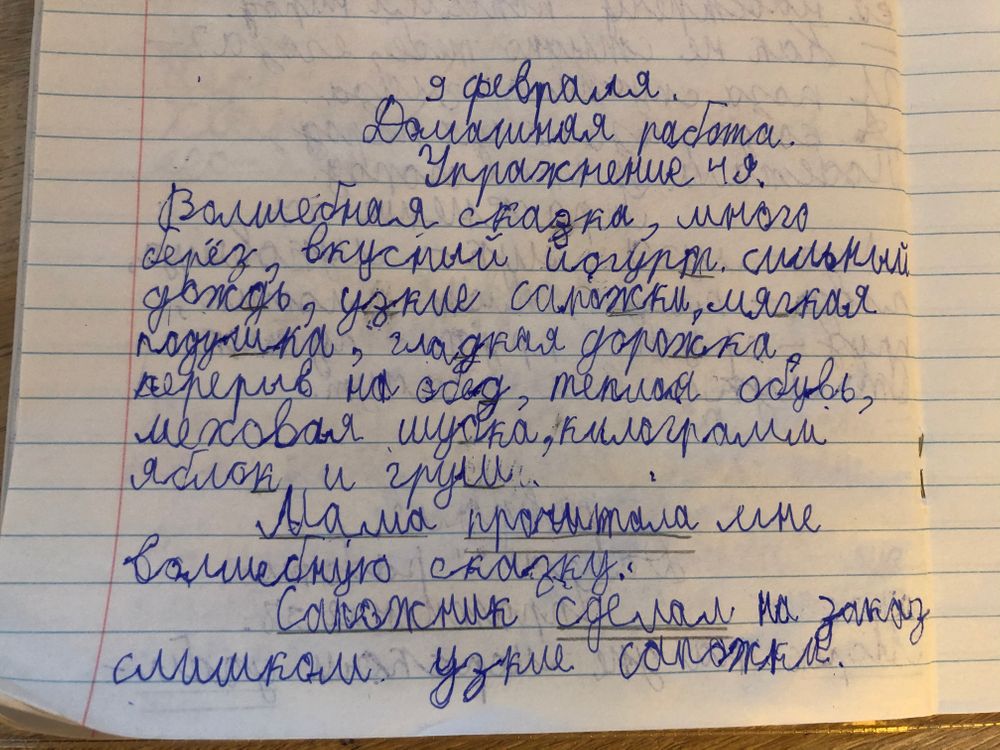 9 февраля.
Домашняя работа.
Упражнение 49.
Волшебная сказка, много
берёз, вкусный йогурт. сильный
дождь, узкие сапожки, мягкая
подушка, гладкая дорожка,
перерыв на обед, теплая обувь,
меховая шубка, килограмм
яблок и груш.
Мама прочитала мне
волшебную сказку.
Сапожник сделал на заказ
слишком узкие сапожки.